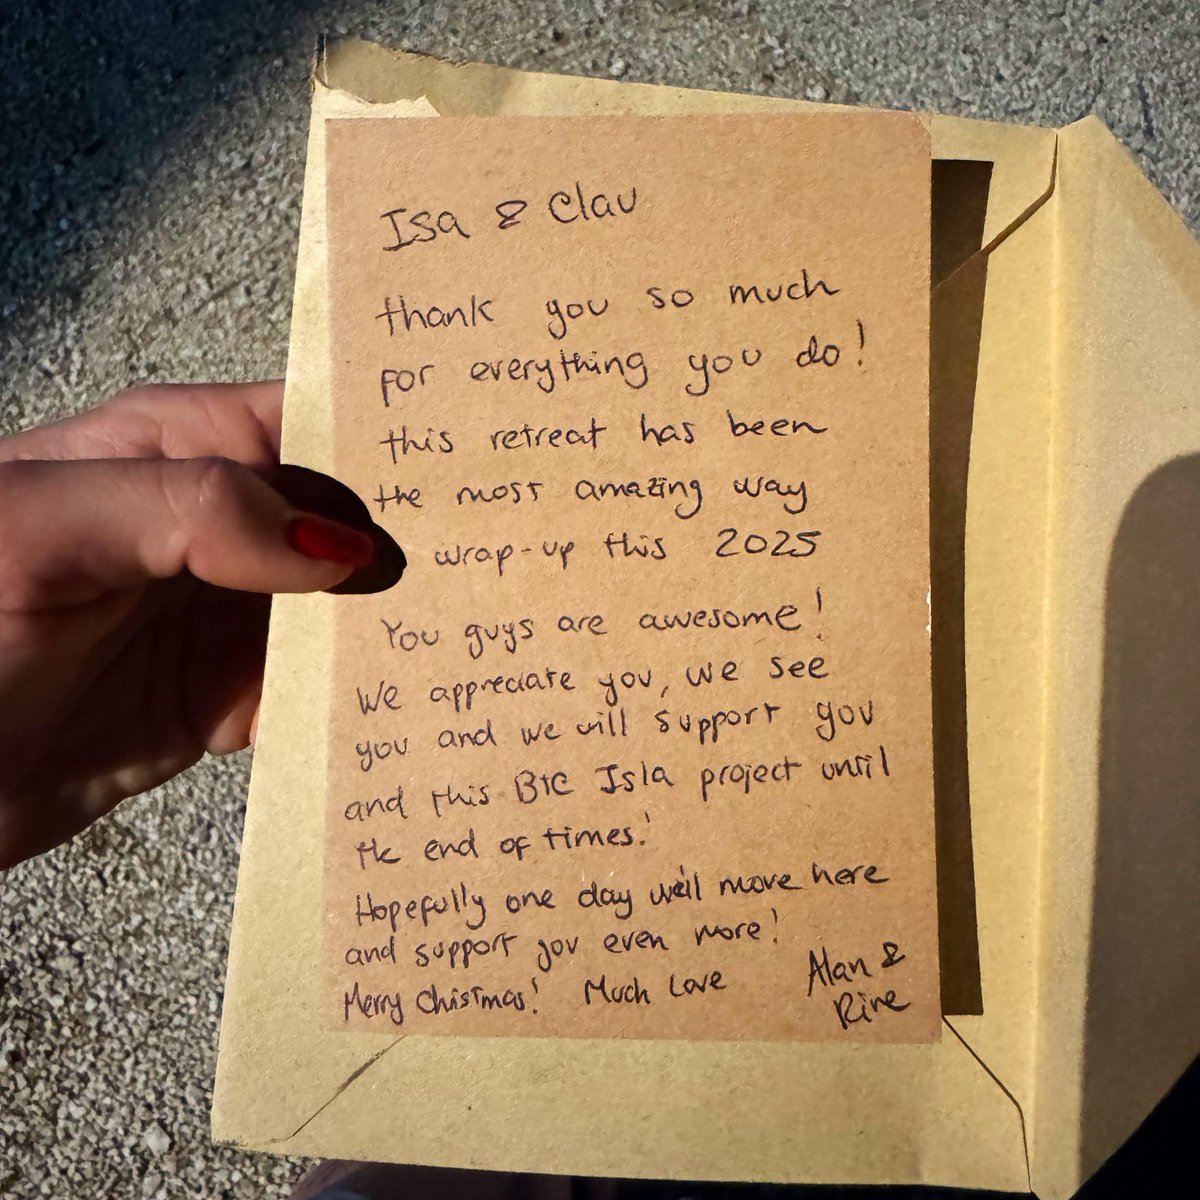 Isa & Clau
thank you so much
for everything you do!
this retreat has been
the most amazing way
wrap-up this 2025
You guys are awesome!
We appreciate you, we see
you and we will support you
and this BtC Isla project until
the end of times!
Hopefully one day we'll move here
and support you even more!
Merry Chistmas! Much Love
Alan &
Rine